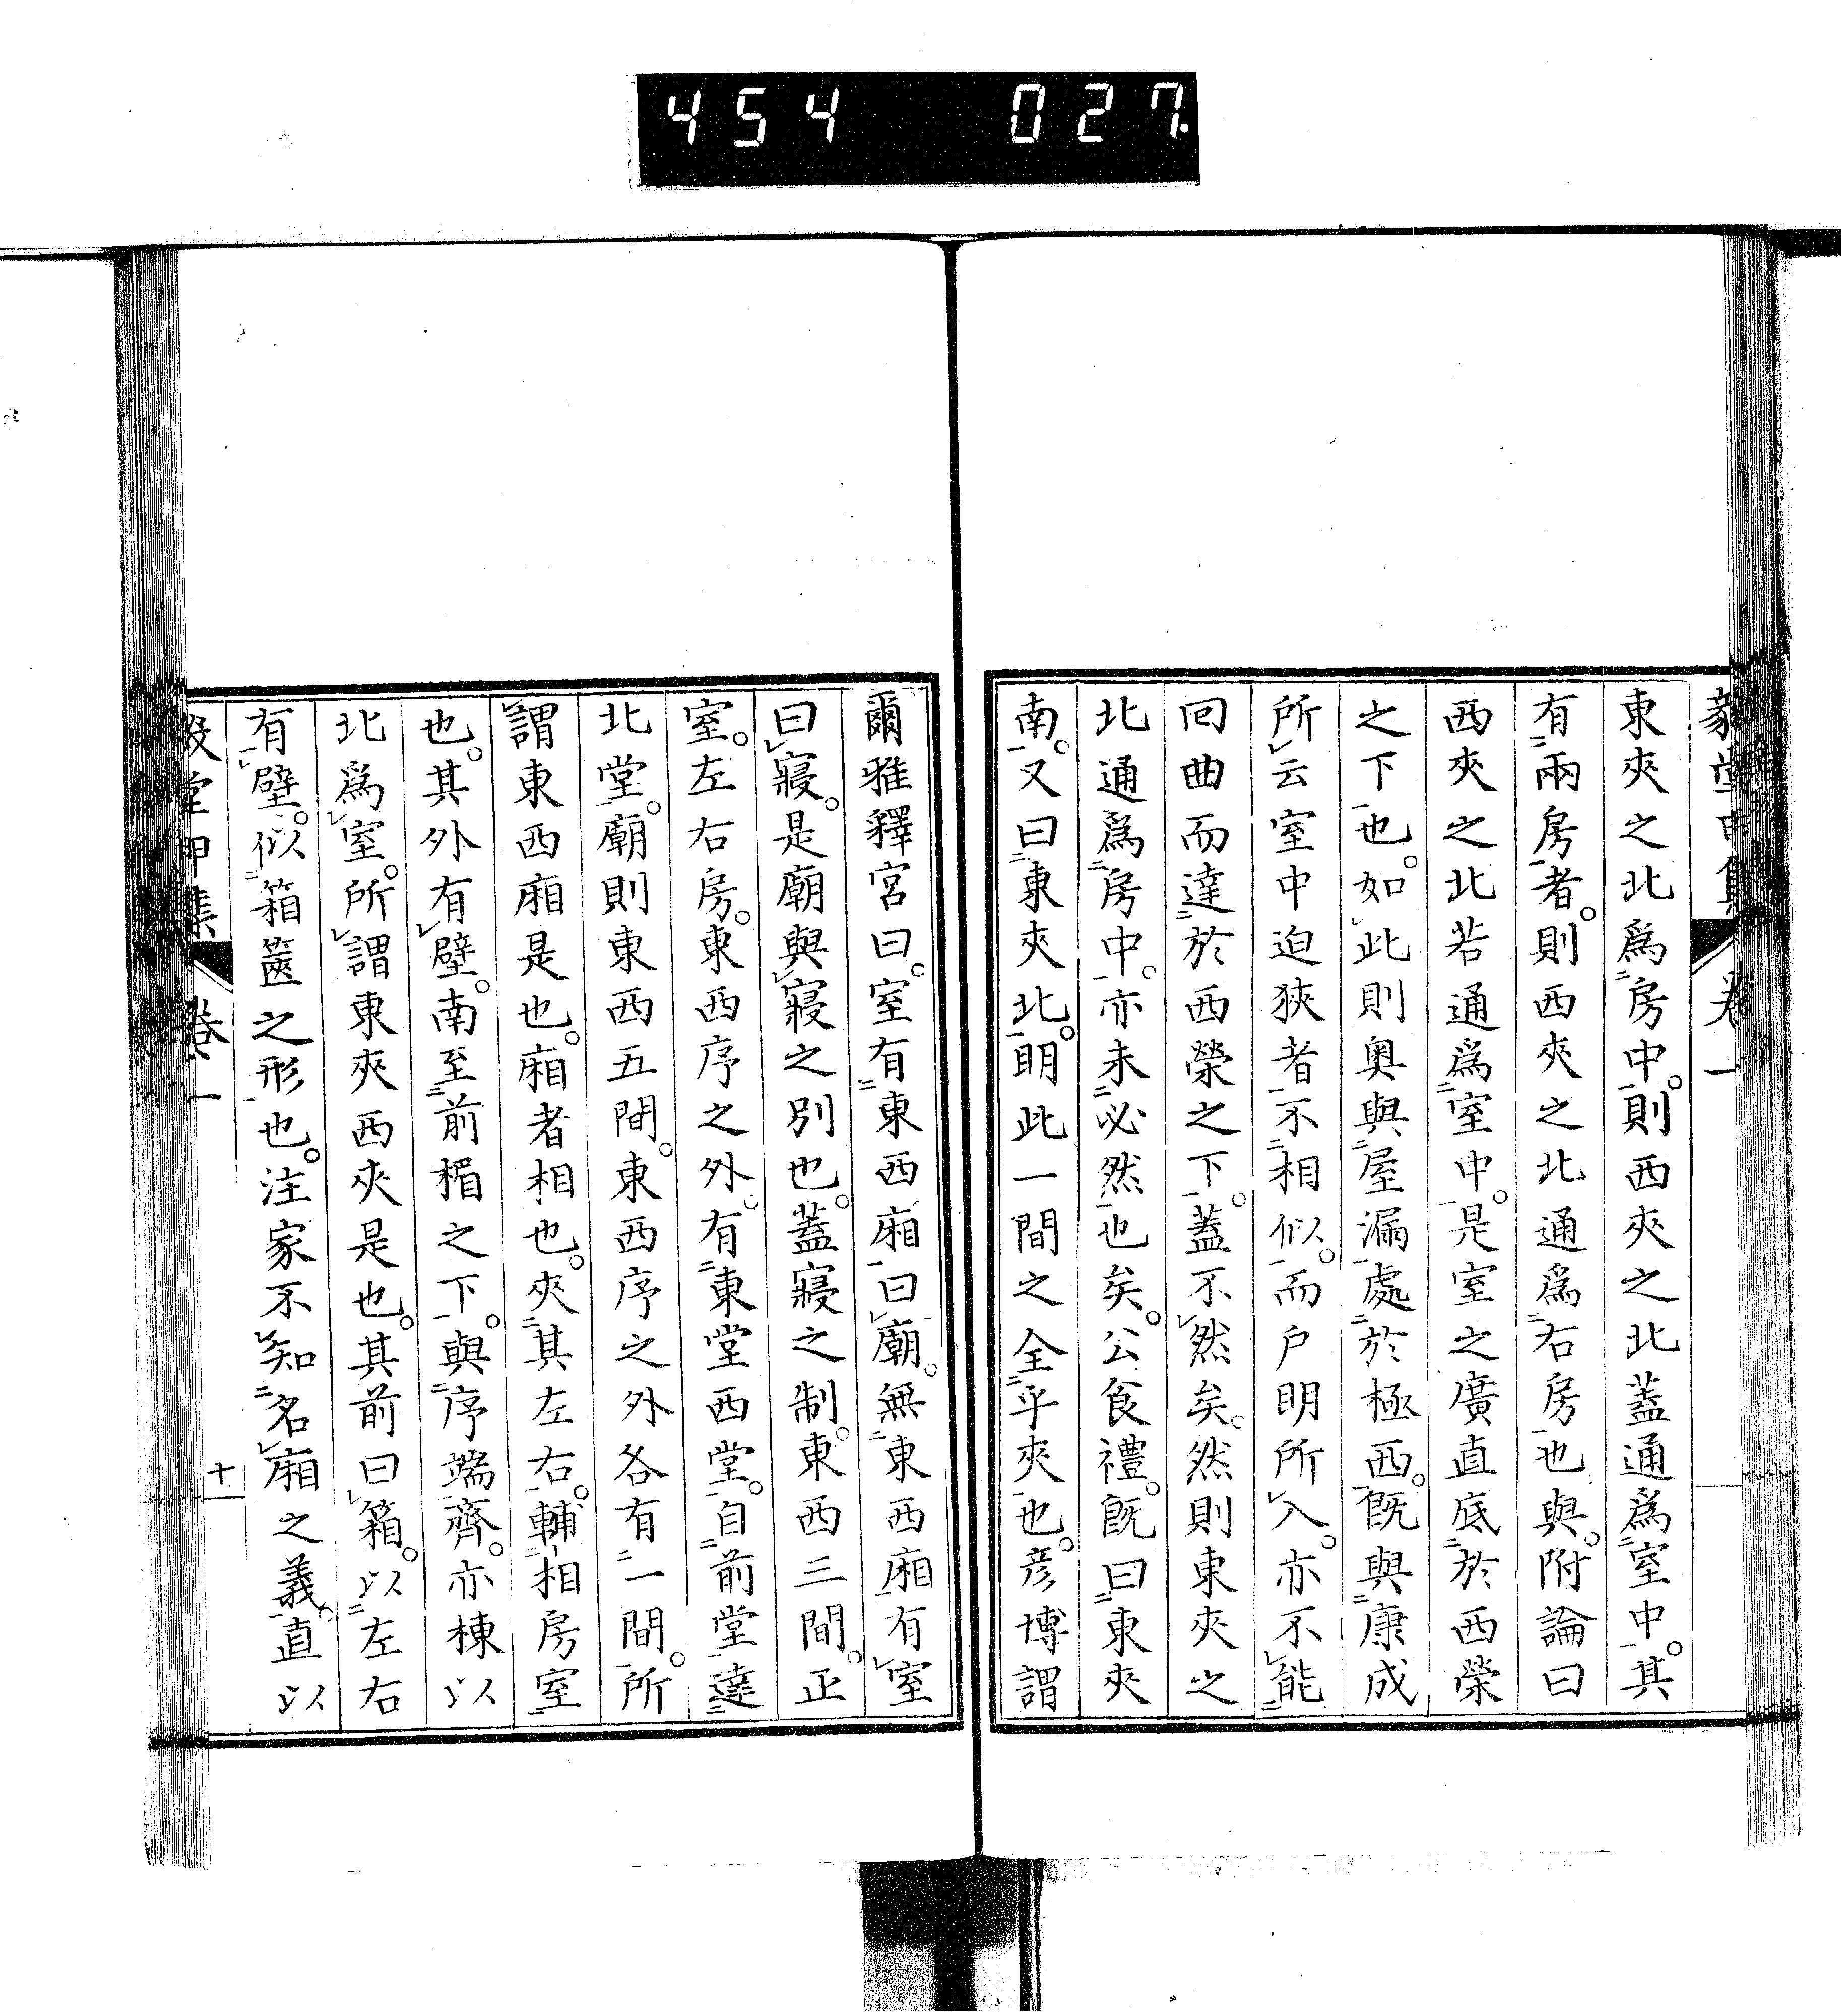 454 027
東夾之北爲房中。則西夾之北蓋通爲室中。其
有兩房者。則西夾之北通爲右房也與。附論曰
西夾之北若通爲室中。是室之廣直底於西榮
之下也。如此則奧與屋漏處於極西。既與康成
所云室中迫狹者不相似。而戶明所入。亦不能
回曲而達於西榮之下。蓋不然矣。然則東夾之
北通爲房中。亦未必然也矣。公食禮。既曰東夾
南。又曰東夾北。明此一間之全乎夾也。彥博謂
爾雅釋宮曰。室有東西廂曰廟。無東西廂有室
曰寢。是廟與寢之別也。蓋寢之制。東西三間。正
室。左右房。東西序之外。有東堂西堂。自前堂達
北堂。廟則東西五間。東西序之外各有一間。所
謂東西廂是也。廂者相也。夾其左右。輔相房室
也。其外有壁。南至前楣之下。與序端齊。亦棟以
北爲室。所謂東夾西夾是也。其前曰箱。以左右
有壁。似箱篋之形也。注家不知名廂之義。直以
卷一
十